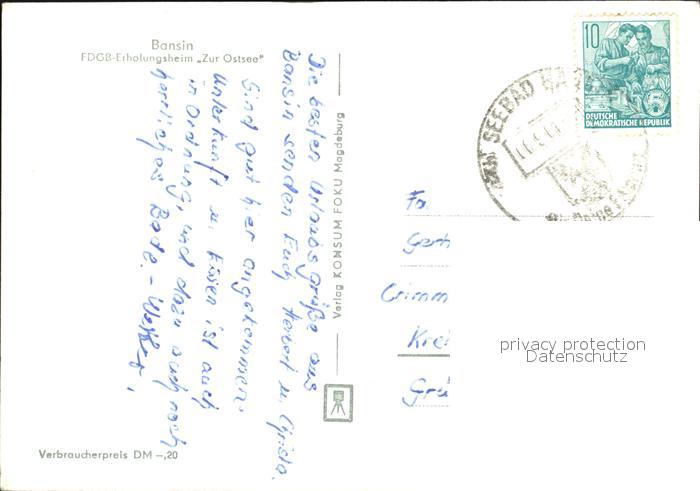 Bansin
FDGB-Erholungsheim „Zur Ostsee"
Die besten Urlaubsgrüße aus
Bansin senden Euch Herbert u. Christa.
Sind gut hier angekommen.
Unterkunft u. Essen ist auch
in Ordnung, und dazu auch noch
herrliches Bade-Wetter!
Verlag KONSUM FOKU Magdeburg
10
DEUTSCHE
DEMOKRATISCHE REPUBLIK
SEEBAD
Fa.
Gerh
Crimm
Krei
Grü
privacy protection
Datenschutz
Verbraucherpreis DM -,20